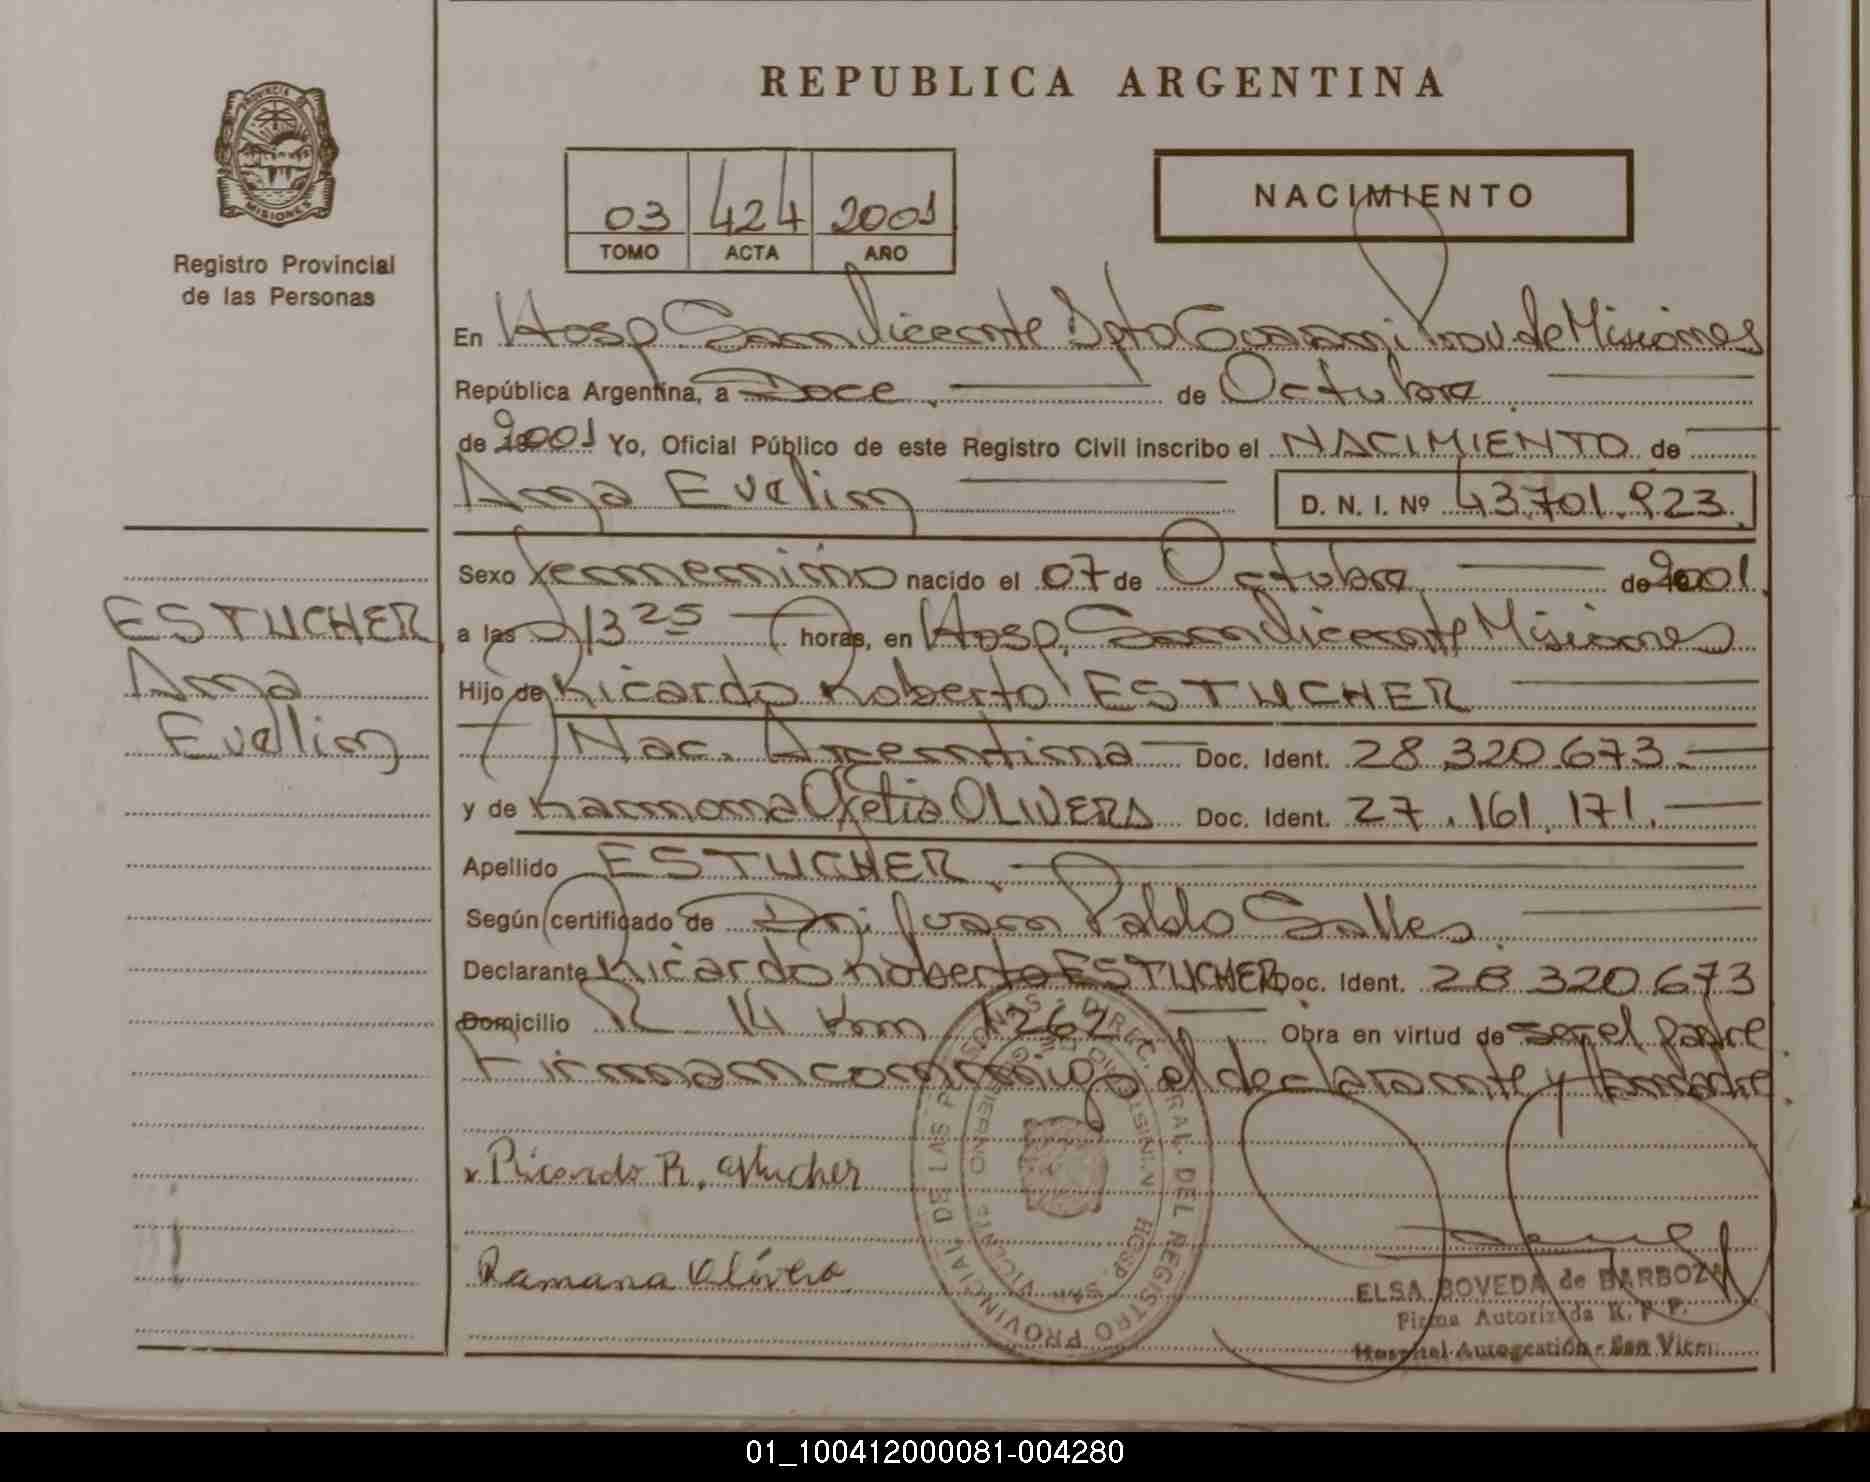 REPUBLICA ARGENTINA
PROVINCIA DE
MISIONES
Registro Provincial
de las Personas
03 424 2001
TOMO ACTA AÑO
NACIMIENTO
En Hosp. San Vicente Dpto Guarani Prov. de Misiones
República Argentina, a Doce. de Octubre.
de 2001 Yo, Oficial Público de este Registro Civil inscribo el NACIMIENTO de
Ana Evelin D. N. I. Nº 43.701.923.
Sexo femenino nacido el 07 de Octubre de 2001.
a las 13 25 horas, en Hosp. San Vicente Misiones
Hijo de Ricardo Roberto ESTUCHER
Nac. Argentina Doc. Ident. 28.320.673.
y de Ramona OLIVERA Doc. Ident. 27.161.171.
Apellido ESTUCHER.
Según certificado de Dr. Juan Pablo Salles.
Declarante Ricardo Roberto ESTUCHER Doc. Ident. 28.320.673
Domicilio R 14 Km 1262 Obra en virtud de ser el padre.
Firman conmigo el declarante y la madre.
ESTUCHER
Ana
Evelin
x Ricardo R. estucher
Ramana Olivera
REGISTRO PROVINCIAL DE LAS PERSONAS - DIREC. GRAL. DEL
HOSP. SAN VICENTE
MINISTERIO DE GOBIERNO
ELSA BOVEDA de BARBOZA
Firma Autorizada R. P. P.
Hospital Autogestión - San Vicen
01_100412000081-004280